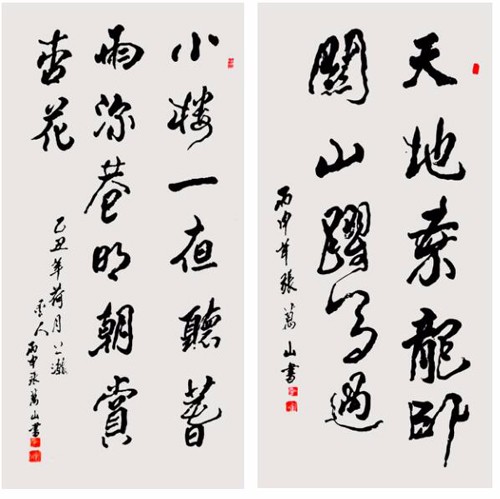 天地乘龍卧
關山躍馬過
丙申年張萬山書
小楼一夜聽春
雨深巷明朝賞
杏花
己丑年荷月上澣
丙申張萬山書